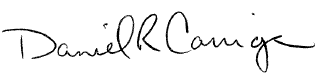 Daniel R Carriga